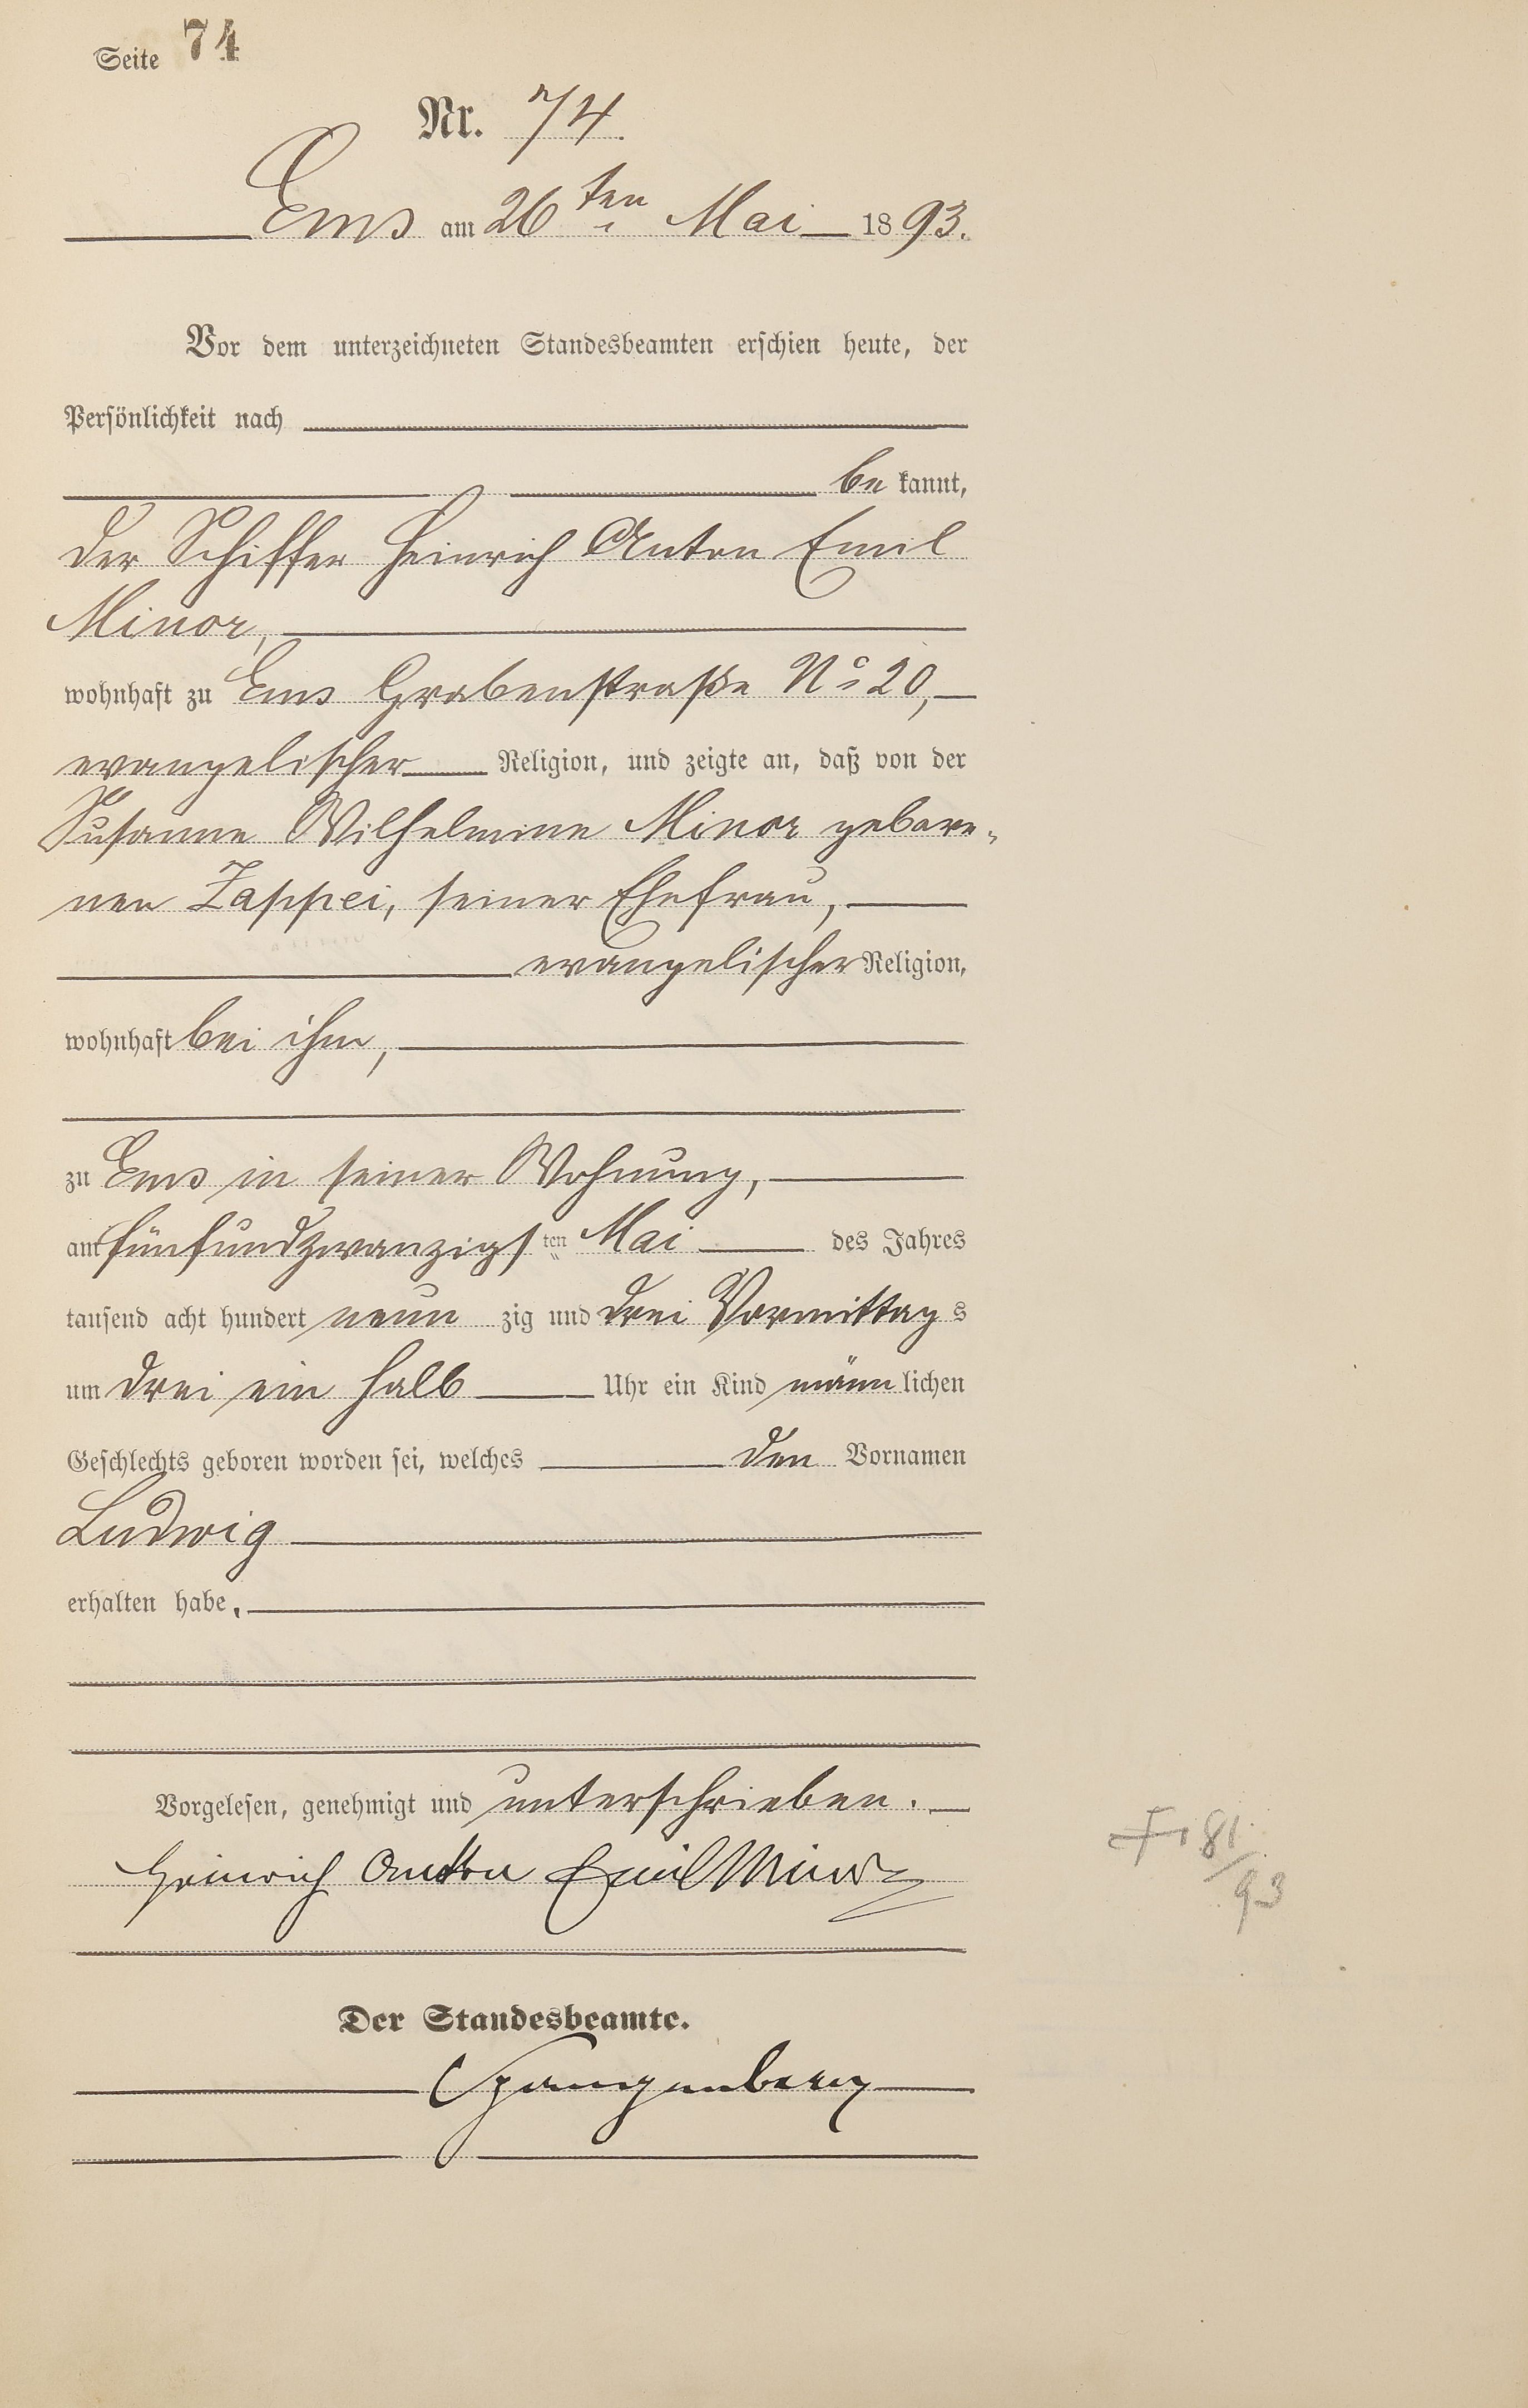 Seite 74
Nr. 74.
Ems am 26ten Mai 1893.
Vor dem unterzeichneten Standesbeamten erschien heute, der
Persönlichkeit nach
be kannt,
der Schiffer Heinrich Anton Emil
Minor,
wohnhaft zu Ems Grabenstraße No 20,
evangelischer Religion, und zeigte an, daß von der
Susanne Wilhelmine Minor gebore-
nen Zappei, seiner Ehefrau,
evangelischer Religion,
wohnhaft bei ihm,
zu Ems in seiner Wohnung,
am fünfundzwanzigsten Mai des Jahres
tausend acht hundert neun zig und drei Vormittags
um drei ein halb Uhr ein Kind männlichen
Geschlechts geboren worden sei, welches den Vornamen
Ludwig
erhalten habe.
Vorgelesen, genehmigt und unterschrieben.
Heinrich Anton Emil Minor
81
/93
Der Standesbeamte.